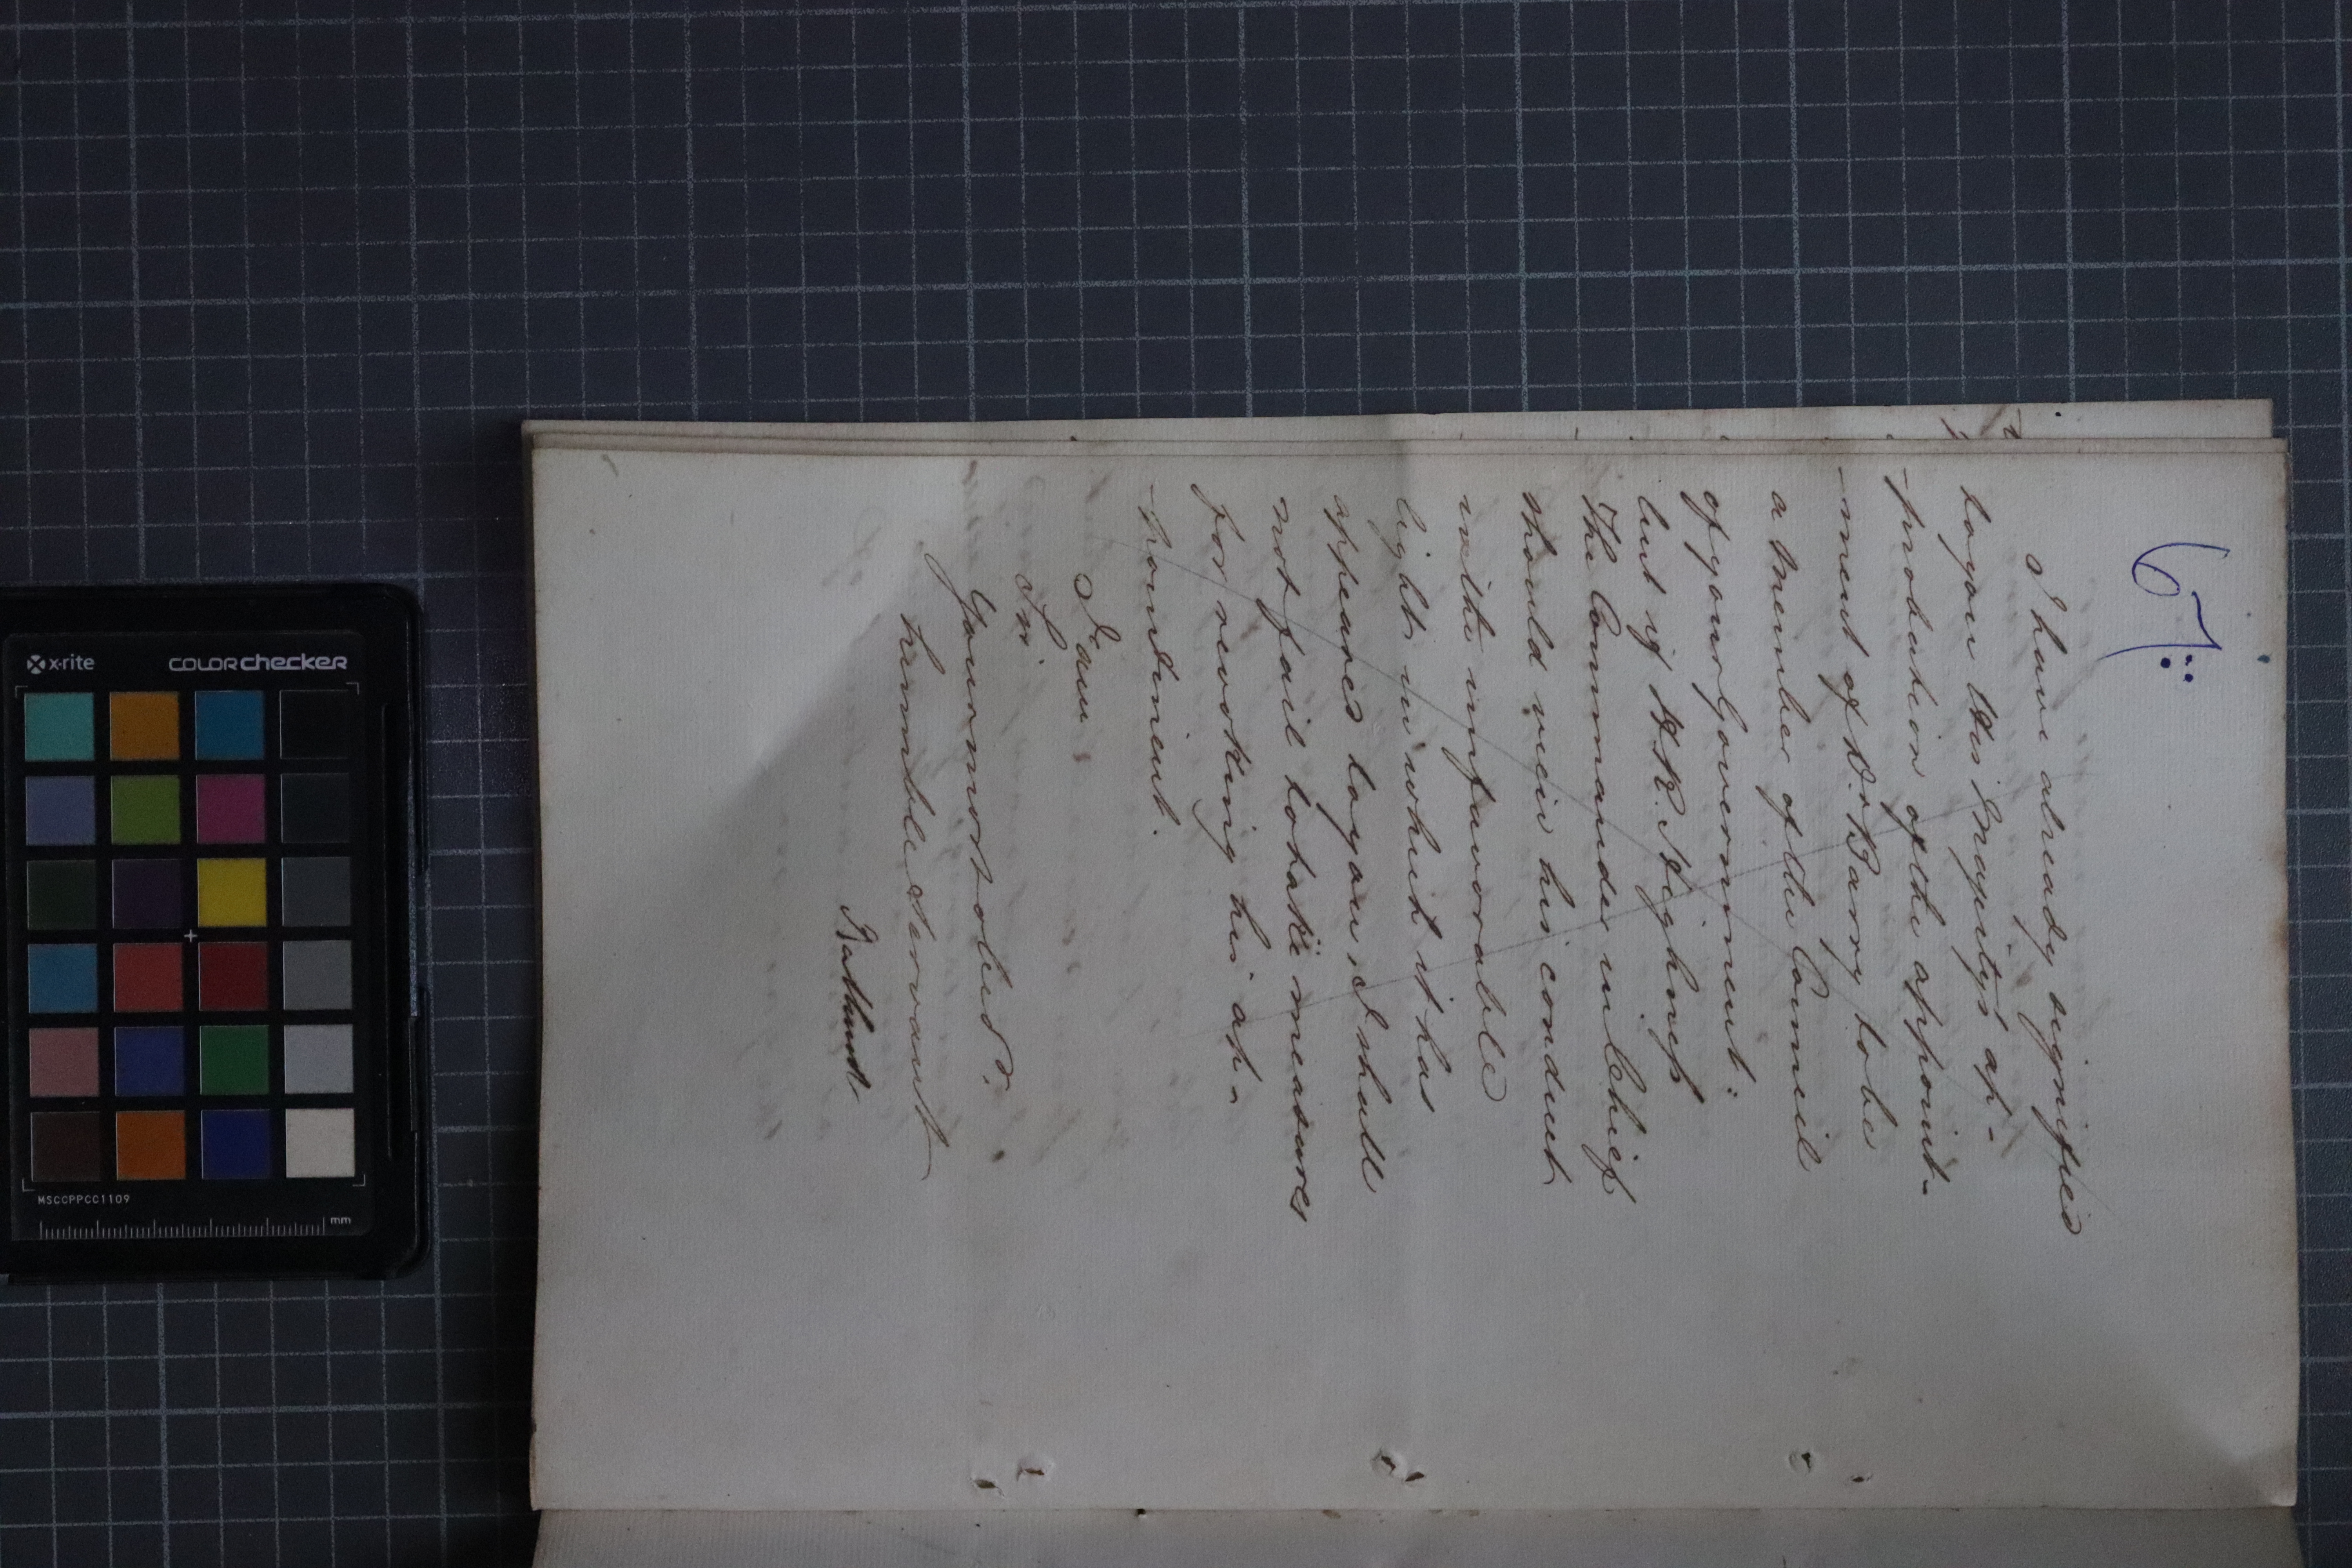 67:
I have already signified
to you His Majesty's ap-
-probation of the appoint-
-ment of Dr Barry to be
a Member of the Council
of your Government:
but if H.R. Highness
The Commander in Chief
should view his conduct
in the unfavorable
light in which it has
appeared to you, I shall
not fail to take measures
for revoking his ap-
-pointment.
I am
Sir
Your most obedt.
humble Servant
Bathurst
x-rite
COLORchecker
MSCCPPCC1109
mm